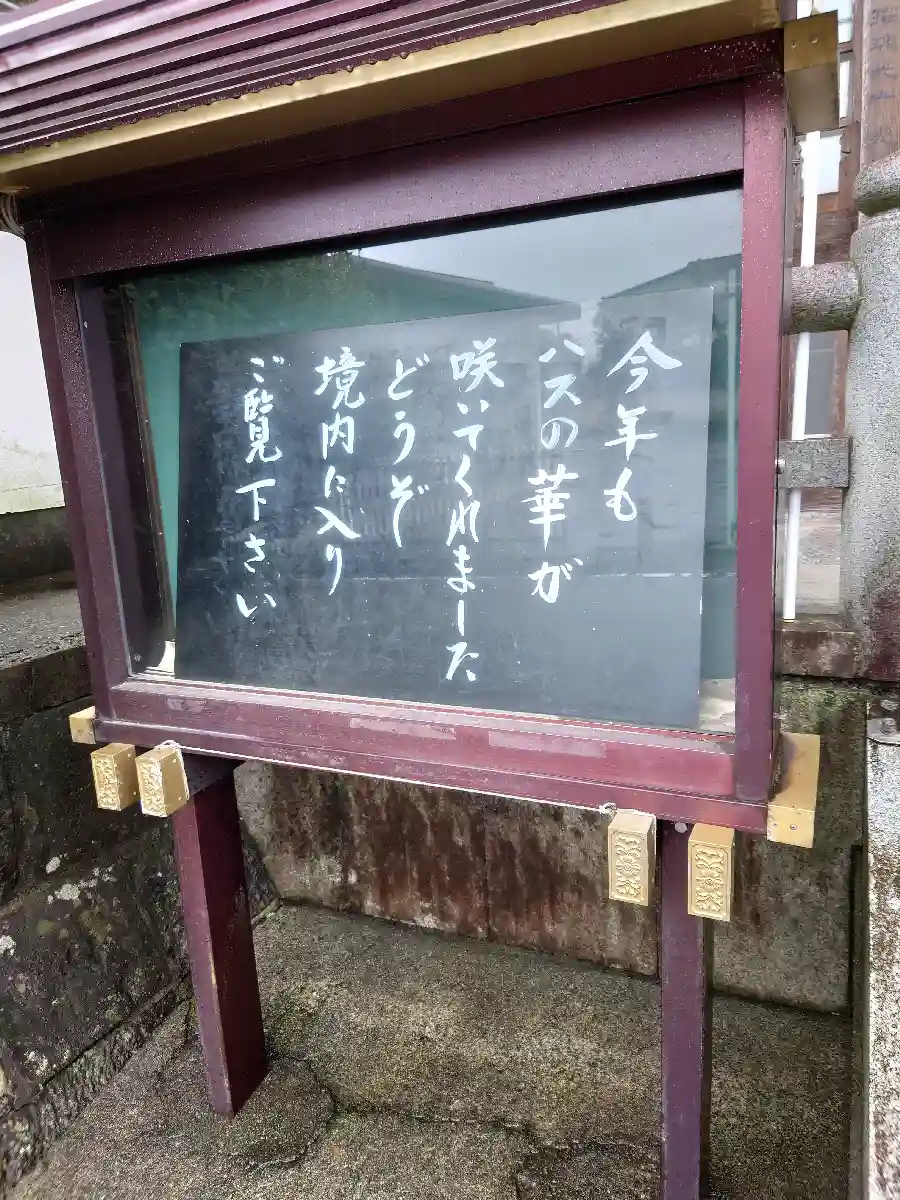 今年も
ハスの華が
咲いてくれました
どうぞ
境内に入り
ご覧下さい